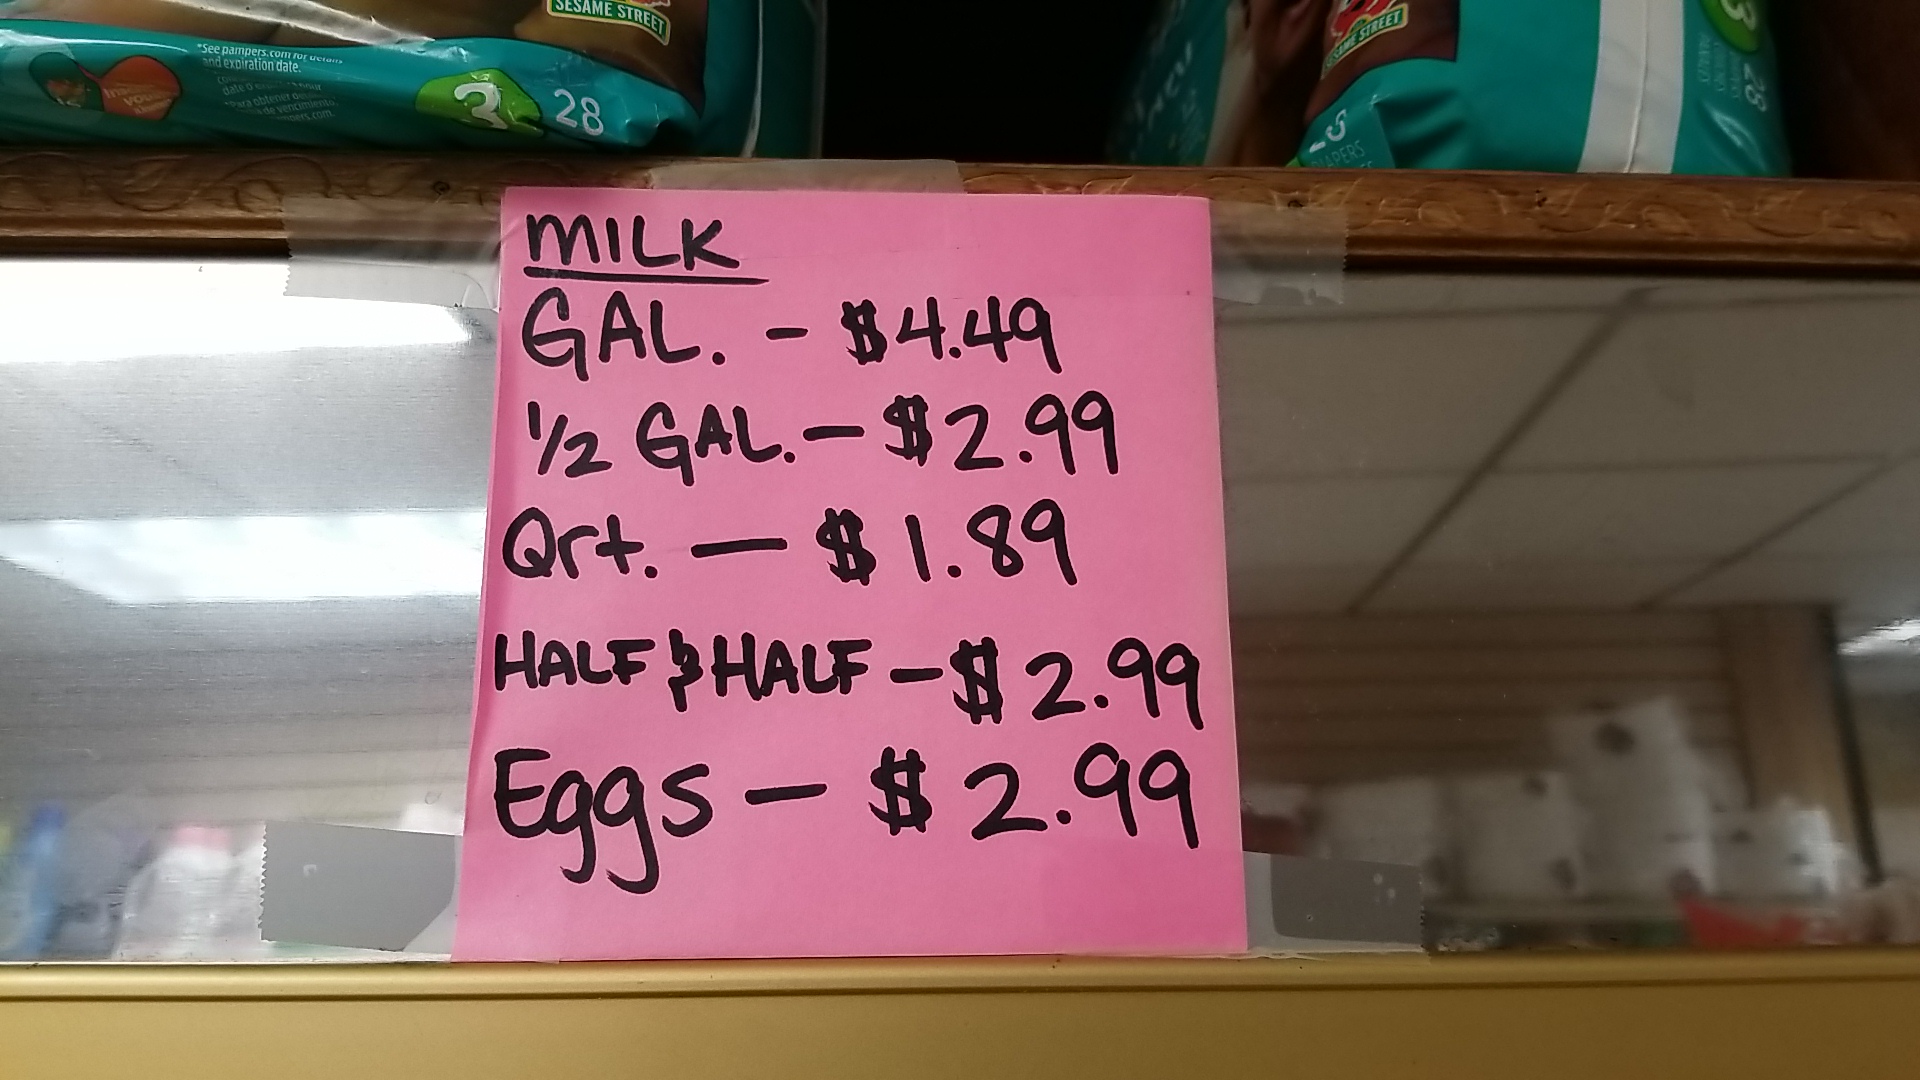 SESAME STREET
*See pampers.com for details
and expiration date.
3
28
SESAME STREET
3
28
DIAPERS
MILK
GAL. - $4.49
1/2 GAL. - $2.99
Qrt. - $1.89
HALF & HALF - $2.99
Eggs - $2.99